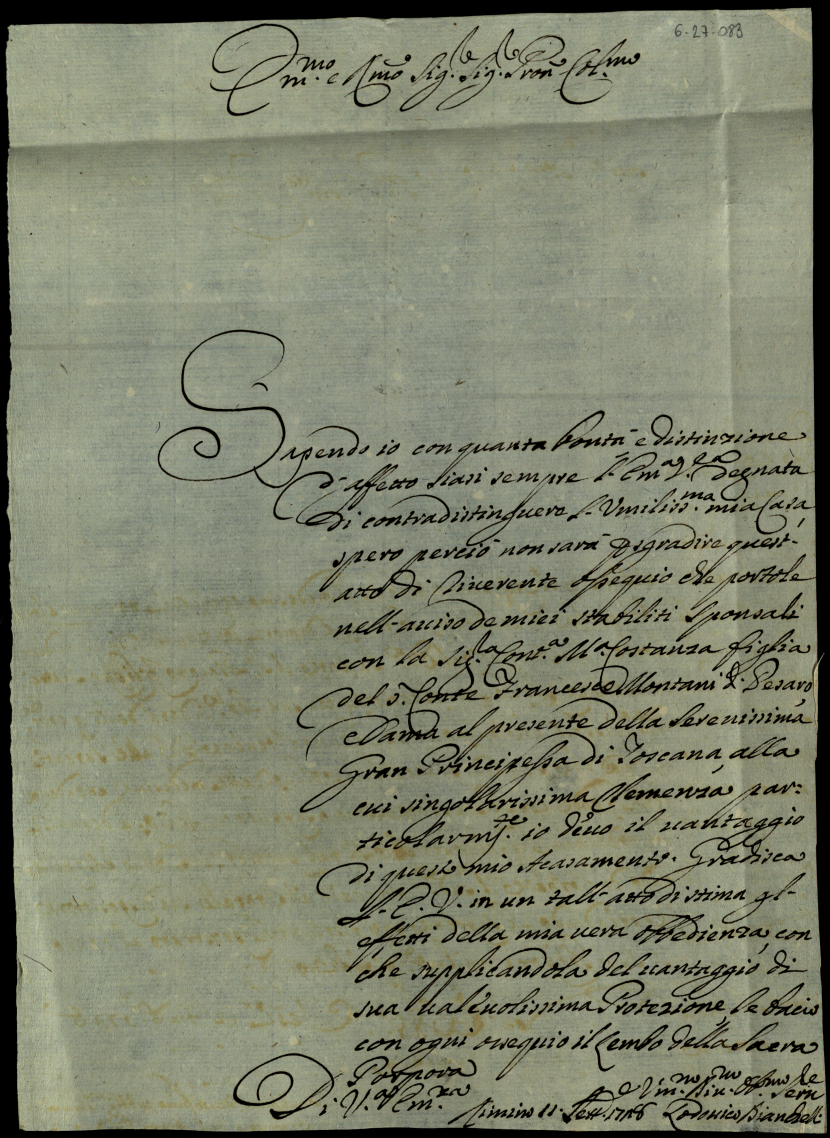 6-27-083
Em.mo e Rmo Sig.re Sig.re Pron Col.mo
Sapendo io con quanta bontà e distinzione
d'affetto siasi sempre l'Em.a V.ra degnata
di contradistinguere l'Umiliss.ma mia Casa
spero perciò non sarà p sgradire quest'
atto di riverente ossequio che portole
nell'auiso de miei stabiliti sponsali
con la Sig.ra Cont.a M.a Costanza figlia
del S. Conte Francesco Montani di Pesaro,
e Dama al presente della Serenissima
Gran Principessa di Toscana, alla
cui singolarissima Clemenza, par:
ticolarm.te io deuo il uantaggio
di questo mio Acasamento. Gradisca
l'E. V. in un tall'atto di stima gl'
effetti della mia vera obbedienza, con
che supplicandola del uantaggio di
sua ualeuolissima Protezione, le bacio
con ogni ossequio il Lembo della Sacra
Porpora
Di V.a Em.za
Rimino 11 Sett.e
Um.mo Diu.mo Obb.mo Seru.re
Lodovico Bianchelli